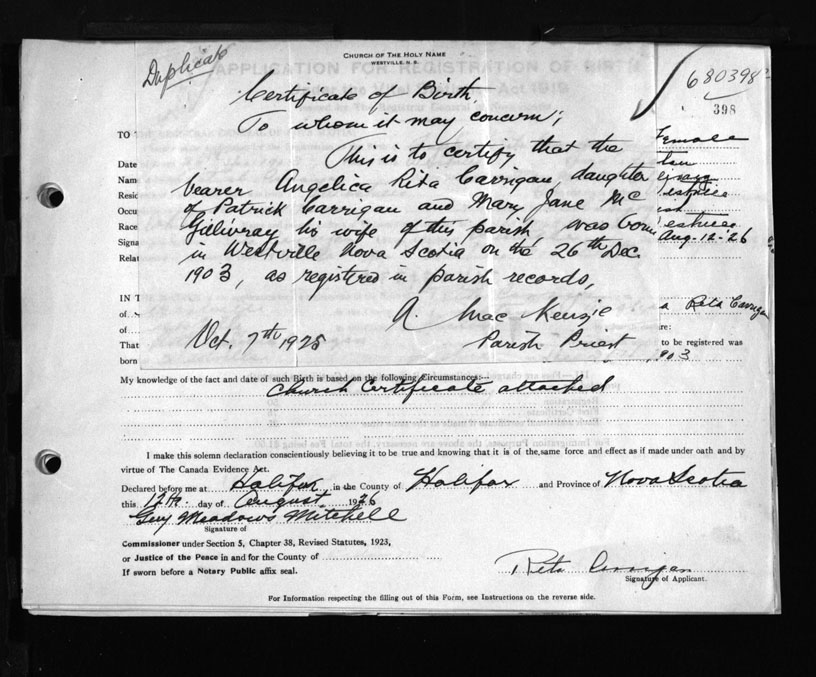 Duplicate
CHURCH OF THE HOLY NAME
WESTVILLE, N. S.
680398
398
Certificate of Birth
To whom it may concern;
This is to certify that the
bearer Angelica Rita Carrigan, daughter
of Patrick Carrigan and Mary Jane Mc
Gillivray his wife of this parish was born
in Westville Nova Scotia on the 26th Dec.
1903, as registered in parish records,
A. MacKenzie
Oct. 7th 1925
Parish Priest
TO
Date
Nam
Resid
Occu
Race
Signa
Relat
Female
Aug-12-26
IN T
of
of
That
born
Rita Carrigan
re:
to be registered was
903
My knowledge of the fact and date of such Birth is based on the following Circumstances:
Church Certificate attached
I make this solemn declaration conscientiously believing it to be true and knowing that it is of the same force and effect as if made under oath and by
virtue of The Canada Evidence Act.
Declared before me at Halifax in the County of Halifax and Province of Nova Scotia
this 12th day of August 1926
Guy Meadows Mitchell
Signature of
Commissioner under Section 5, Chapter 38, Revised Statutes, 1923,
or Justice of the Peace in and for the County of
If sworn before a Notary Public affix seal.
Rita Carrigan
Signature of Applicant.
For Information respecting the filling out of this Form, see Instructions on the reverse side.